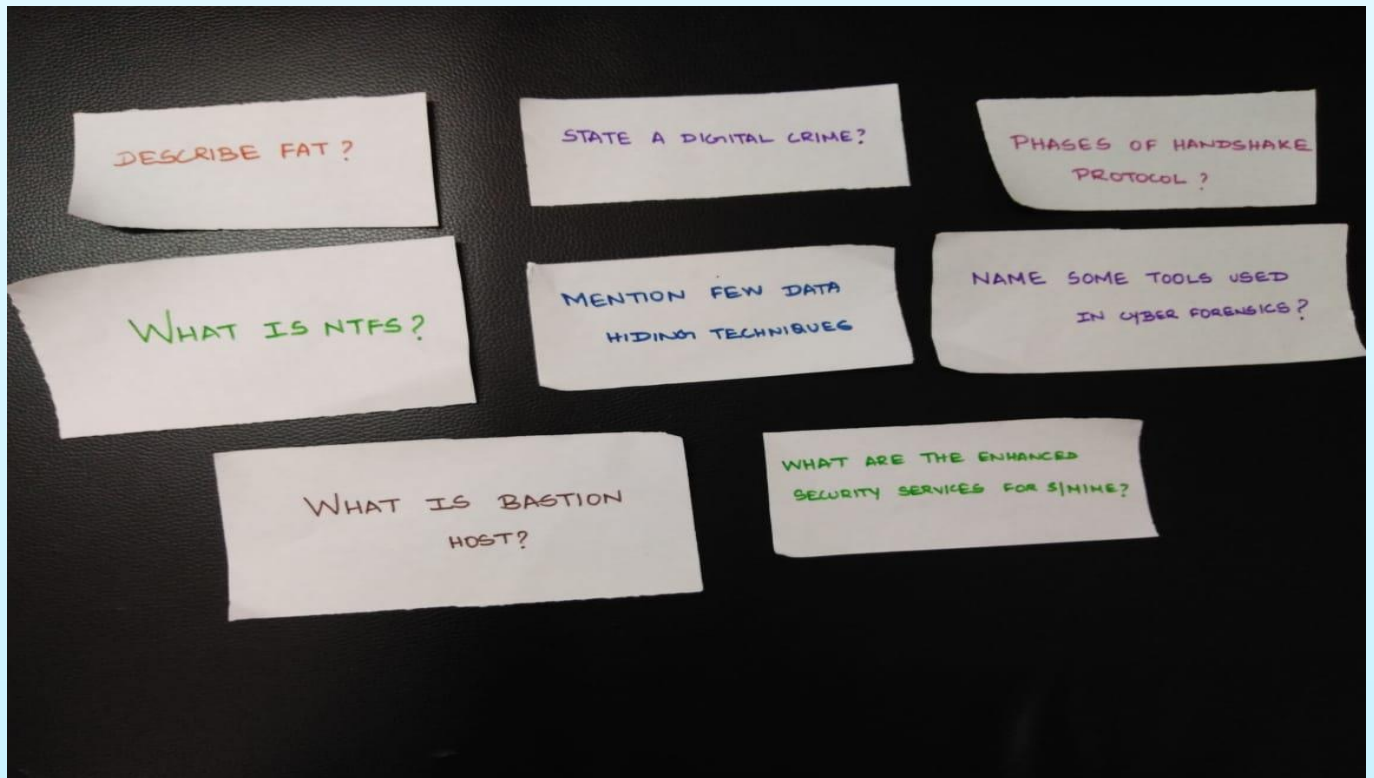 DESCRIBE FAT?
STATE A DIGITAL CRIME?
PHASES OF HANDSHAKE
PROTOCOL?
WHAT IS NTFS?
MENTION FEW DATA
HIDING TECHNIQUES
NAME SOME TOOLS USED
IN CYBER FORENSICS?
WHAT IS BASTION
HOST?
WHAT ARE THE ENHANCED
SECURITY SERVICES FOR S/MIME?